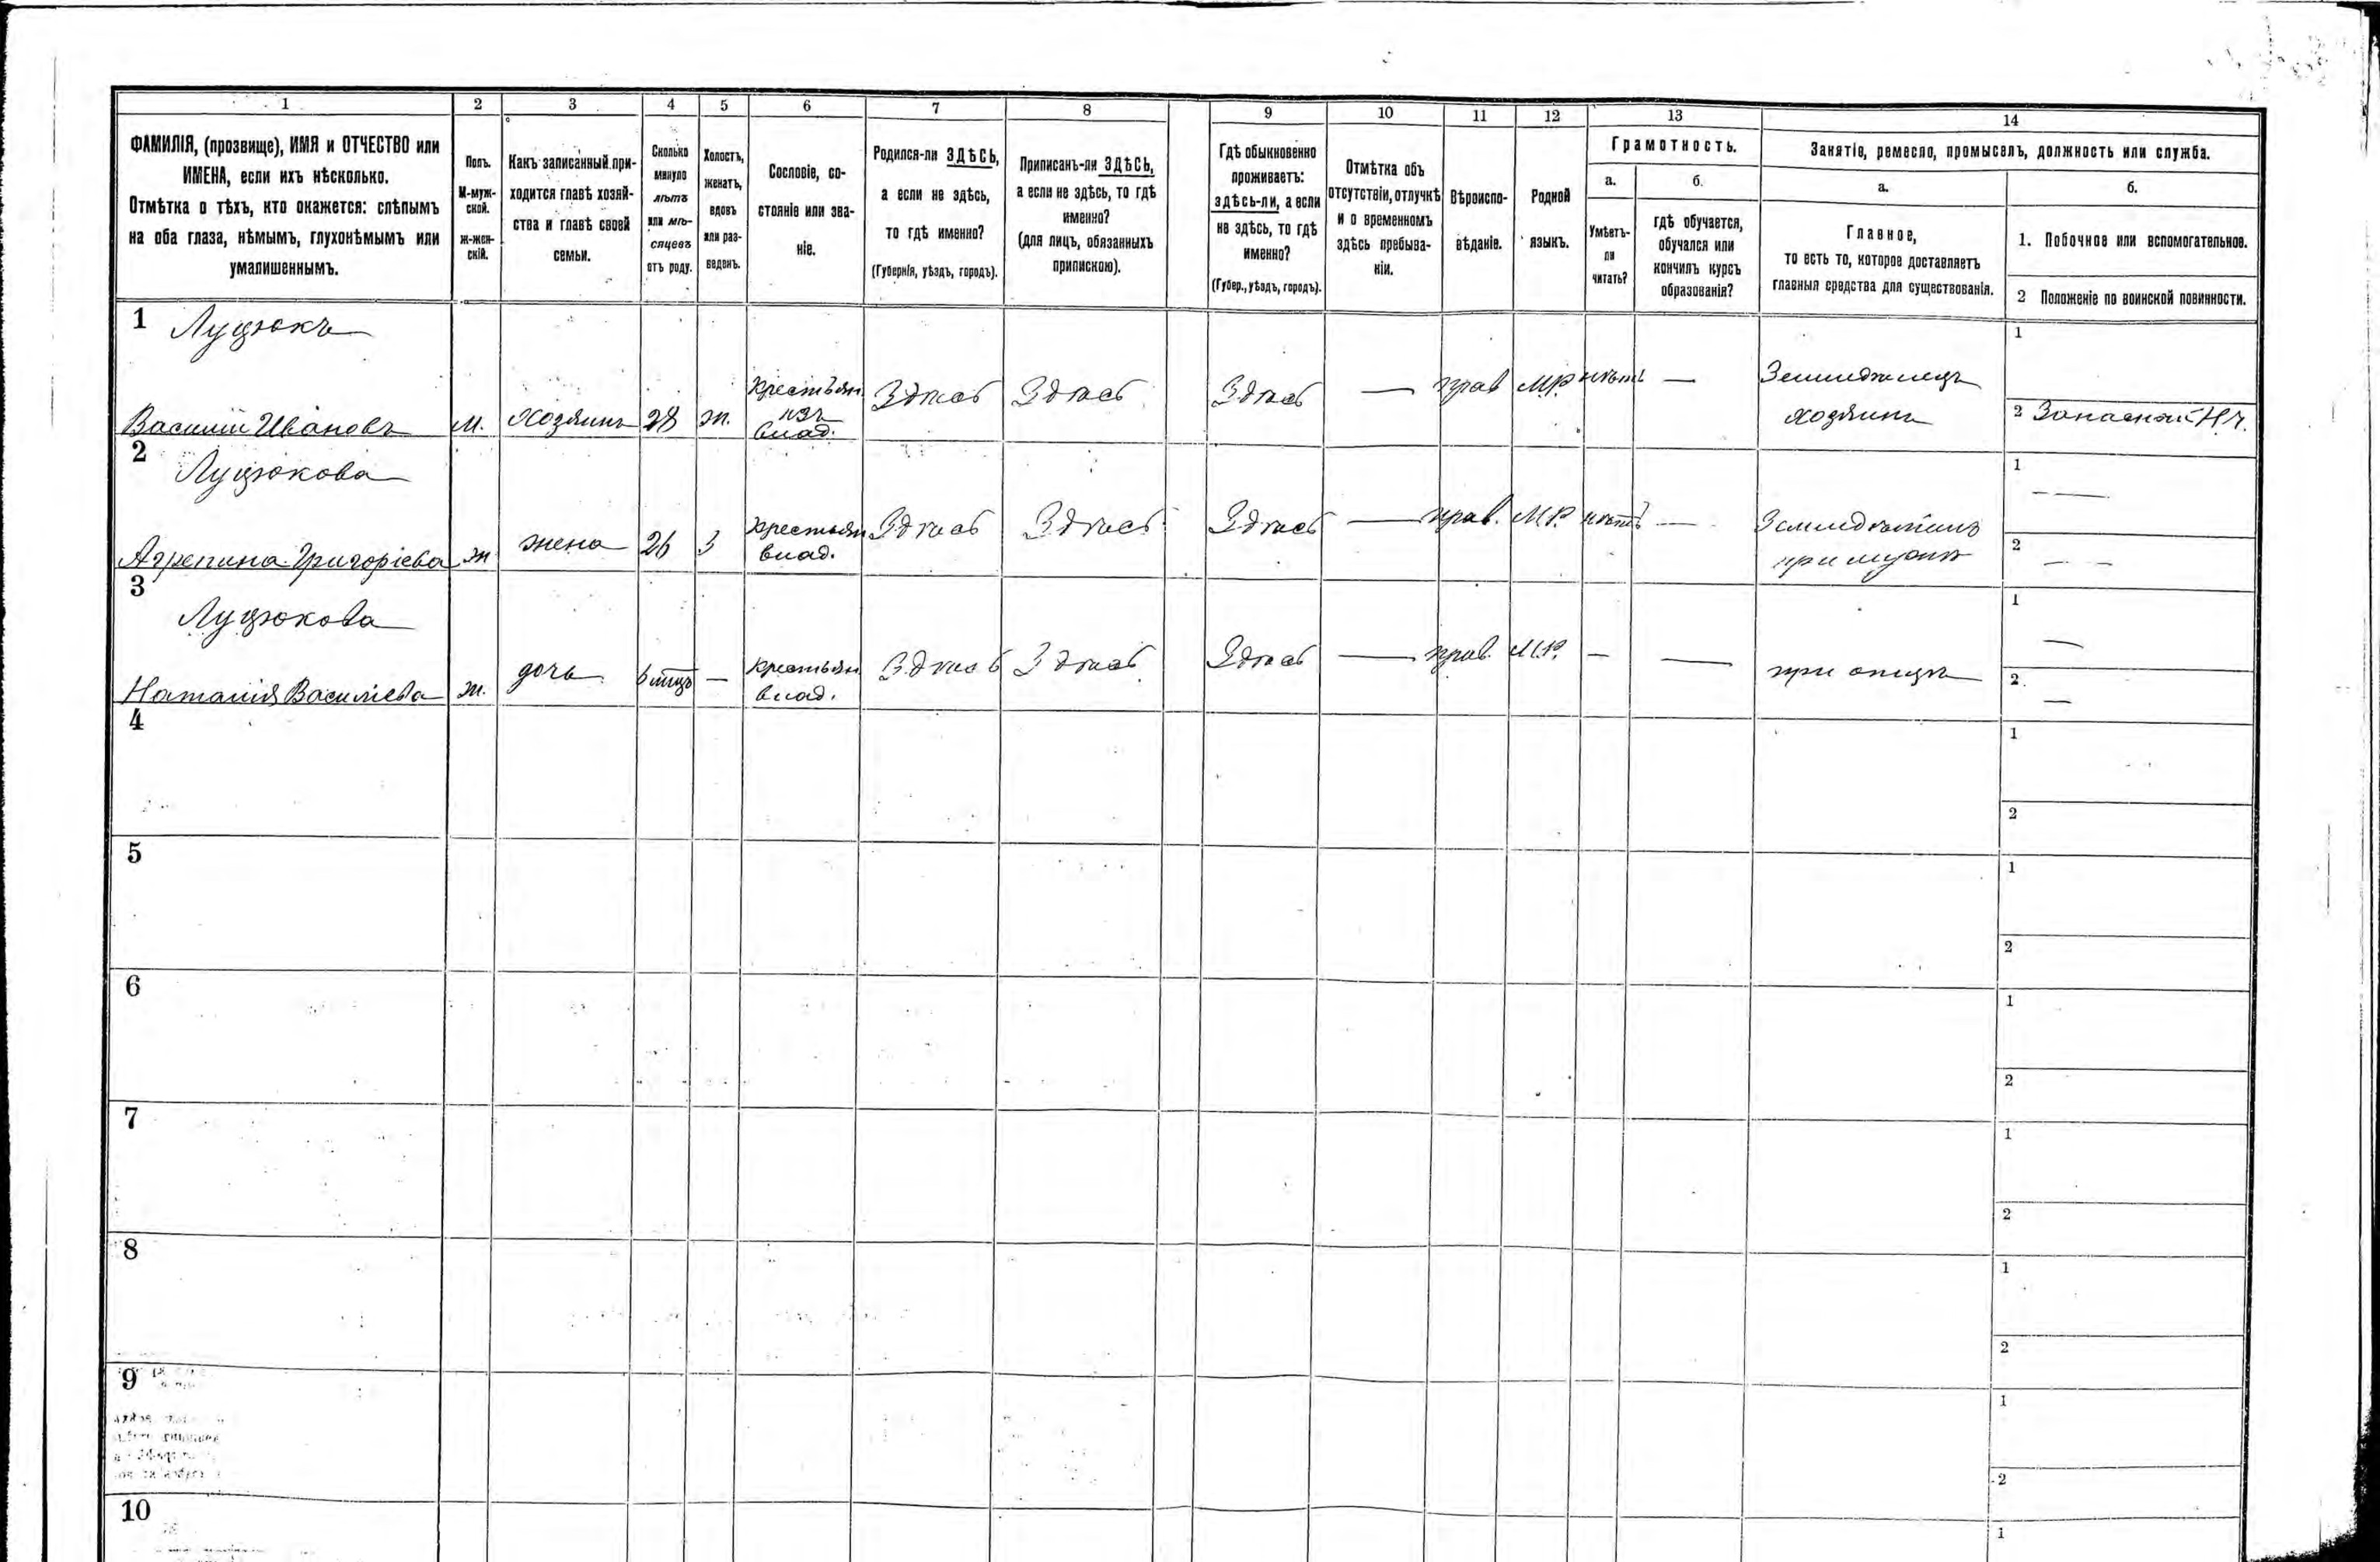 1 2 3 4 5 6 7 8 9 10 11 12 13 14
ФАМИЛІЯ, (прозвище), ИМЯ и ОТЧЕСТВО или
ИМЕНА, если ихъ нѣсколько.
Отмѣтка о тѣхъ, кто окажется: слѣпымъ
на оба глаза, нѣмымъ, глухонѣмымъ или
умалишеннымъ.
Полъ.
М-муж-
ской.
ж-жен-
скій.
Какъ записанный при-
ходится главѣ хозяй-
ства и главѣ своей
семьи.
Сколько
минуло
лѣтъ
или мѣ-
сяцевъ
отъ роду.
Холостъ,
женатъ,
вдовъ
или раз-
веденъ.
Сословіе, со-
стояніе или зва-
ніе.
Родился-ли ЗДѢСЬ,
а если не здѣсь,
то гдѣ именно?
(Губернія, уѣздъ, городъ).
Приписанъ-ли ЗДѢСЬ,
а если не здѣсь, то гдѣ
именно?
(для лицъ, обязанныхъ
припискою).
Гдѣ обыкновенно
проживаетъ:
здѣсь-ли, а если
не здѣсь, то гдѣ
именно?
(Губер., уѣздъ, городъ).
Отмѣтка объ
отсутствіи, отлучкѣ
и о временномъ
здѣсь пребыва-
ніи.
Вѣроиспо-
вѣданіе.
Родной
языкъ.
Грамотность.
а.
Умѣетъ-
ли
читать?
б.
гдѣ обучается,
обучался или
кончилъ курсъ
образованія?
Занятіе, ремесло, промыселъ, должность или служба.
а.
Главное,
то есть то, которое доставляетъ
главныя средства для существованія.
б.
1. Побочное или вспомогательное.
2 Положеніе по воинской повинности.
1 Луцюкъ
Василій Ивановъ
м.
хозяинъ
28
ж.
крестьян.
изъ
влад.
Здѣсь
Здѣсь
Здѣсь
—
прав
М.Р.
нѣтъ
—
Земледѣлецъ
хозяинъ
1
2 Запасный Н.ч.
2 Луцюкова
Агрепина Григоріева
ж
жена
26
З
крестьян
влад.
Здѣсь
Здѣсь
Здѣсь
—
прав.
М.Р.
нѣтъ
—
при мужѣ
1
—
2
— —
3
Луцюкова
Наталія Василіева
ж.
дочь
6 мѣц
—
крестьян.
влад.
Здѣсь
Здѣсь
Здѣсь
—
прав.
М.Р.
—
—
при отцѣ
1
—
2.
—
4
1
2
5
1
2
6
1
2
7
1
2
8
1
2
9
1
2
10
1